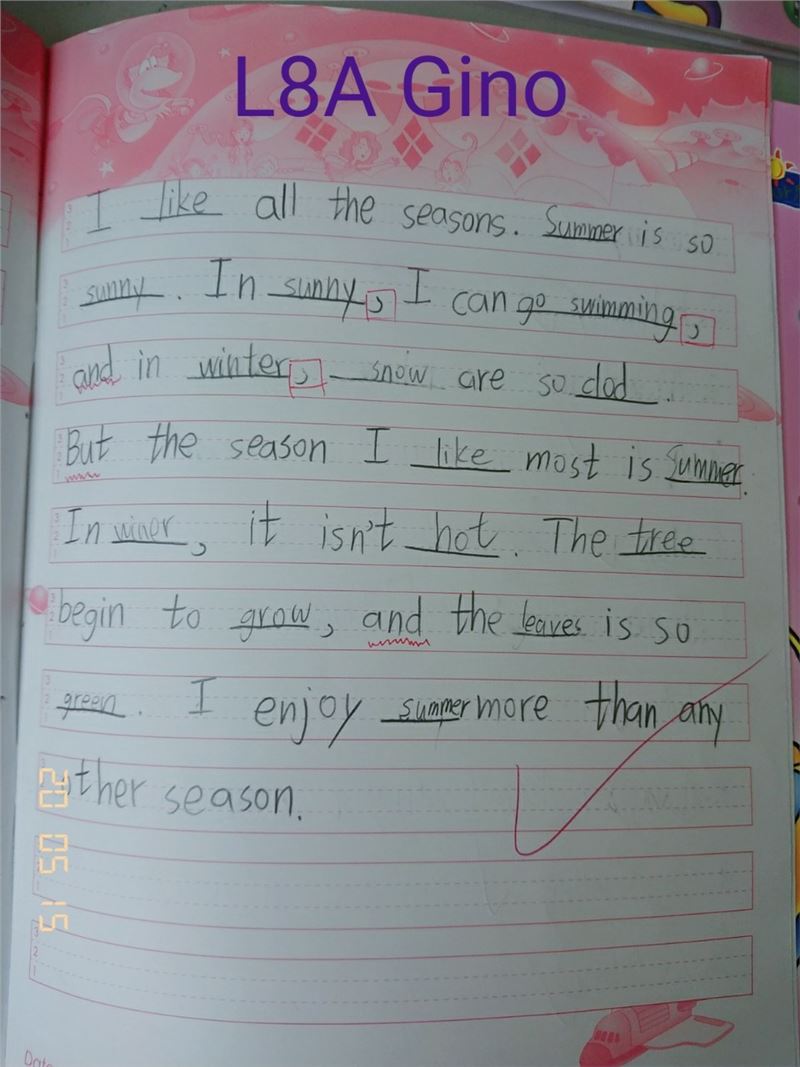 L8A Gino
I like all the seasons. Summer is so
sunny. In sunny, I can go swimming,
and in winter, snow are so clod.
But the season I like most is Summer.
In winer, it isn't hot. The tree
begin to grow, and the leaves is so
green. I enjoy summer more than any
other season.
20 05 15
Date